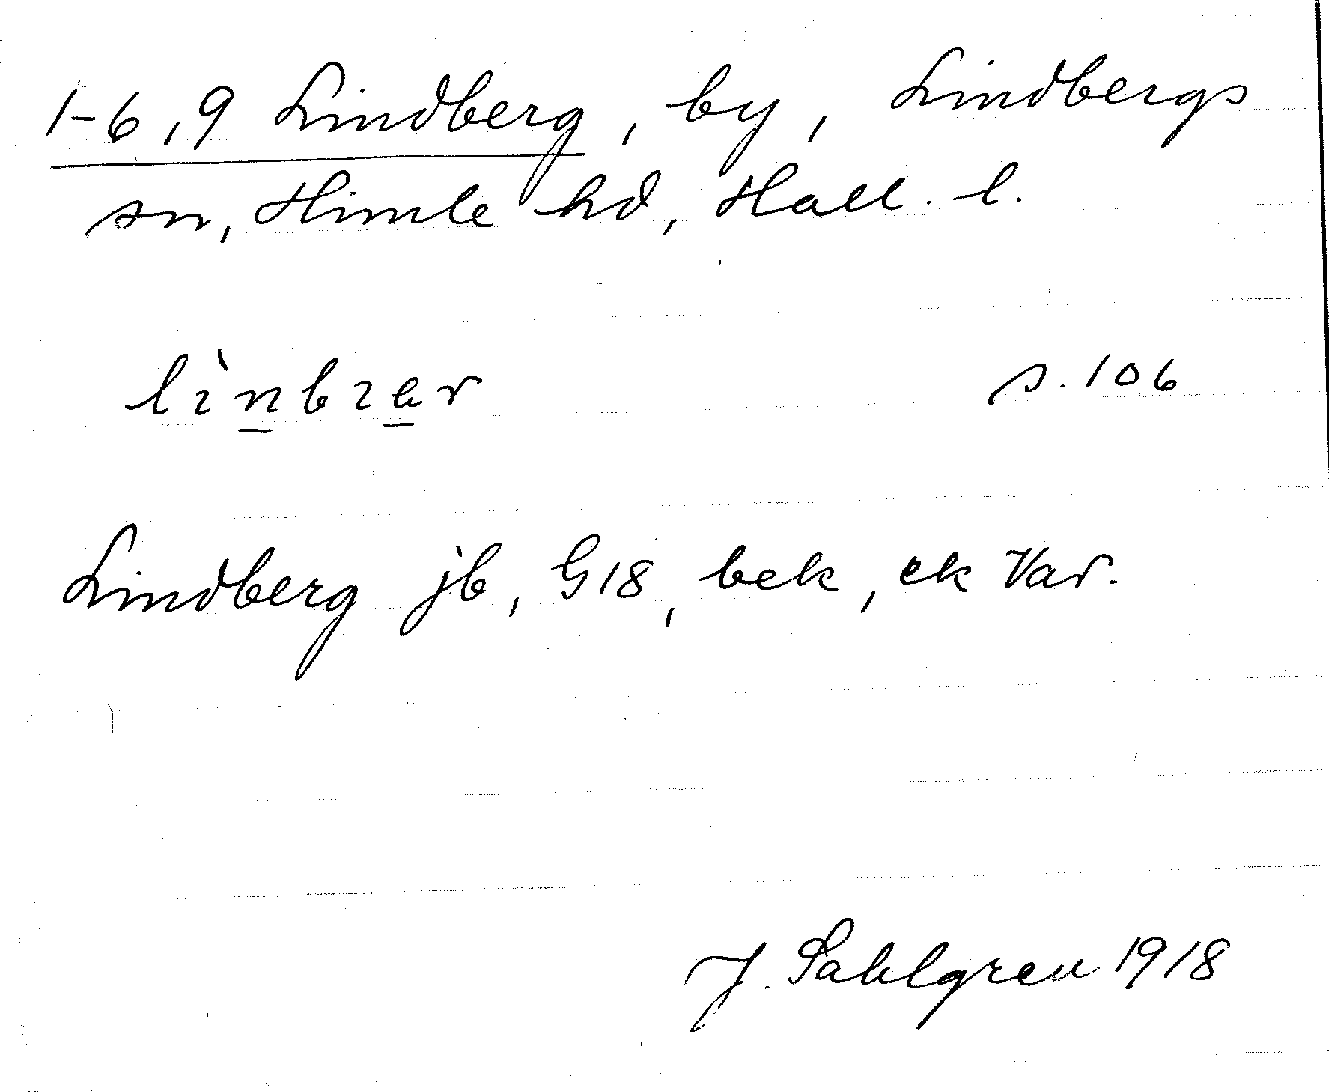 1-6,9 Lindberg, by, Lindbergs
sn, Himle hd, Hall. l.
lìnbrar s. 106
Lindberg jb, G18, bek, ek Var.
J. Sahlgren 1918